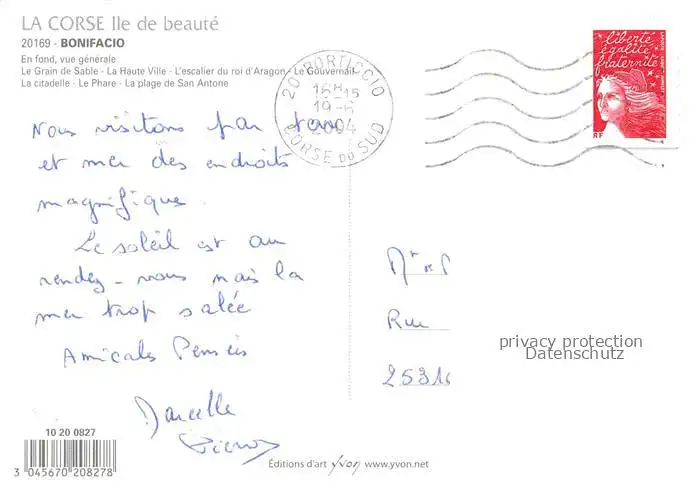 LA CORSE Ile de beauté
20169 - BONIFACIO
En fond, vue générale
Le Grain de Sable - La Haute Ville - L'escalier du roi d'Aragon - Le Gouvernail
La citadelle - Le Phare - La plage de San Antone
20 PORTICCIO
16H15
19-6
2004
CORSE DU SUD
liberté
égalité
fraternité
RF
Nous visitons par terre
et mer des endroits
magnifique.
Le soleil est au
rendez-vous mais la
mer trop salée
Amicales Pensées
Marcelle
Pierrot
Rue
25316
privacy protection
Datenschutz
10 20 0827
3 045670 208278
Éditions d'art yvon www.yvon.net